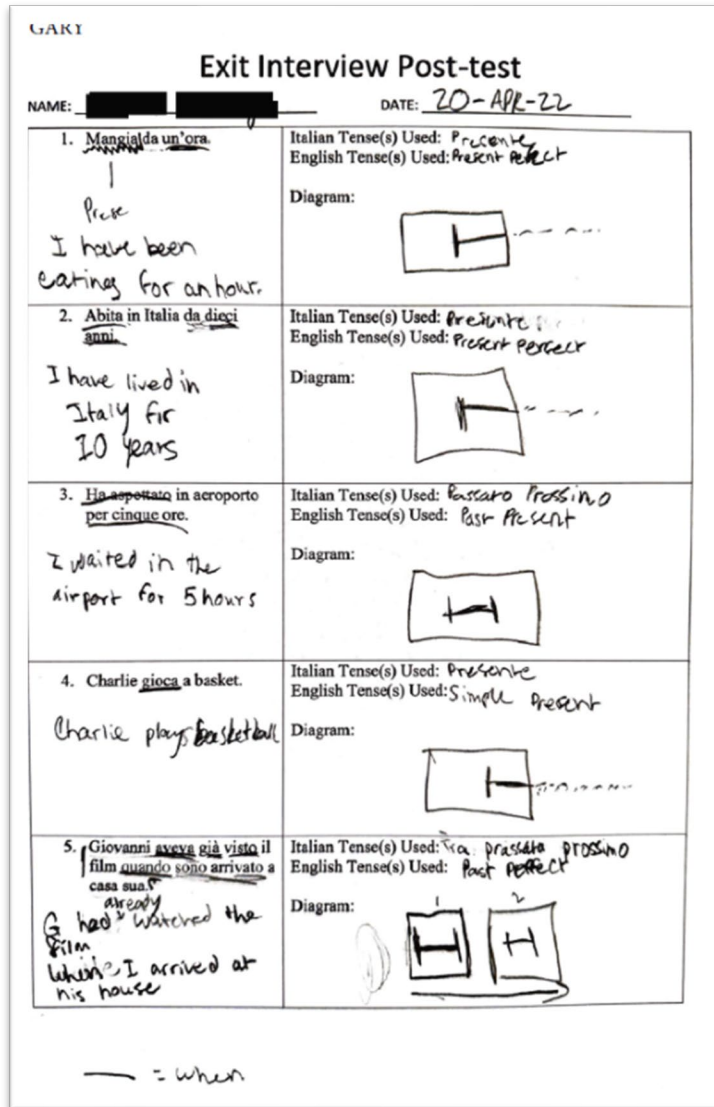 GARY
Exit Interview Post-test
NAME: DATE: 20-APR-22
1. Mangia da un'ora.
Prese
I have been
eating for an hour.
Italian Tense(s) Used: Presente
English Tense(s) Used: Present Perfect
Diagram:
2. Abita in Italia da dieci
anni.
I have lived in
Italy for
10 years
Italian Tense(s) Used: Presente
English Tense(s) Used: Present Perfect
Diagram:
3. Ha aspettato in aeroporto
per cinque ore.
I waited in the
airport for 5 hours
Italian Tense(s) Used: Passato Prossimo
English Tense(s) Used: Past Present
Diagram:
4. Charlie gioca a basket.
Charlie plays basketball
Italian Tense(s) Used: Presente
English Tense(s) Used: Simple Present
Diagram:
5. Giovanni aveva già visto il
film quando sono arrivato a
casa sua.
already
G had watched the
film
when I arrived at
his house
Italian Tense(s) Used: Tra prassato prossimo
English Tense(s) Used: Past Perfect
Diagram:
1 2
= when